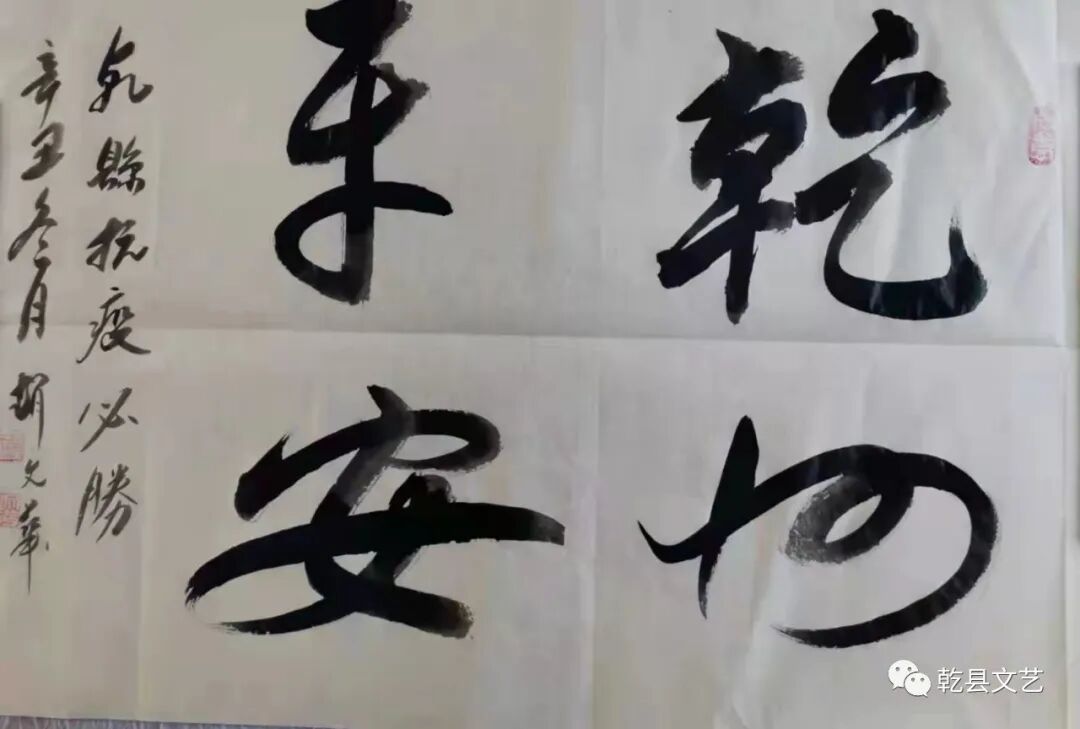 乾州
平安
乹縣抗疫必勝
辛丑冬月 文華
乾县文艺